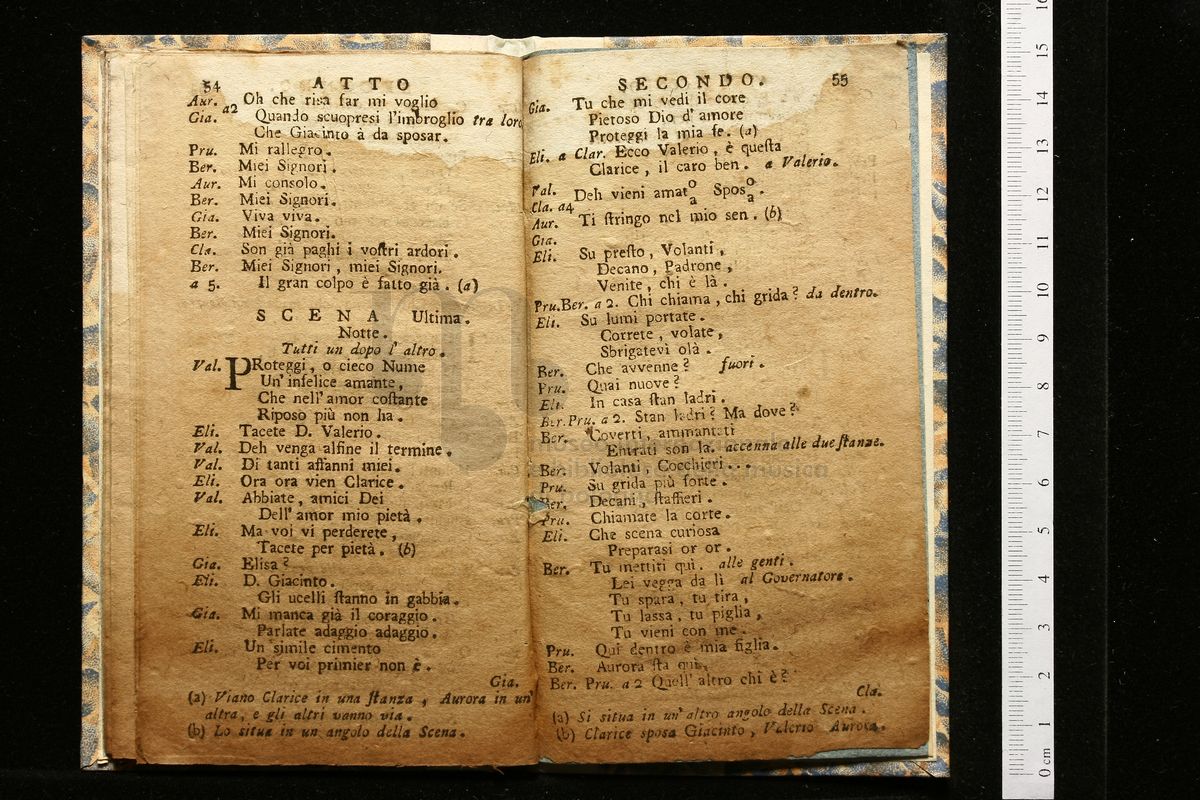 54 ATTO
Aur. Oh che risa far mi voglio
a2
Gia. Quando scuopresi l'imbroglio tra loro
Che Giacinto à da sposar.
Pru. Mi rallegro.
Ber. Miei Signori.
Aur. Mi consolo.
Ber. Miei Signori.
Gia. Viva viva.
Ber. Miei Signori.
Cla. Son già paghi i vostri ardori.
Ber. Miei Signori, miei Signori.
a 5. Il gran colpo è fatto già. (a)
SCENA Ultima.
Notte.
Tutti un dopo l'altro.
Val. PRoteggi, o cieco Nume
Un' infelice amante,
Che nell'amor costante
Riposo più non ha.
Eli. Tacete D. Valerio.
Val. Deh venga alfine il termine.
Val. Di tanti affanni miei.
Eli. Ora ora vien Clarice.
Val. Abbiate, amici Dei
Dell'amor mio pietà.
Eli. Ma voi vi perderete,
Tacete per pietà. (b)
Gia. Elisa?
Eli. D. Giacinto.
Gli ucelli stanno in gabbia.
Gia. Mi manca già il coraggio.
Parlate adaggio adaggio.
Eli. Un simile cimento
Per voi primier non è.
Gia.
(a) Viano Clarice in una stanza, Aurora in un'
altra, e gli altri vanno via.
(b) Lo situa in un angolo della Scena.
SECONDO. 55
Gia. Tu che mi vedi il core
Pietoso Dio d'amore
Proteggi la mia fe. (a)
Eli. a Clar. Ecco Valerio, è questa
Clarice, il caro ben. a Valerio.
Val.
Deh vieni amat o/a Spos o/a.
Cla. a4
Aur. Ti stringo nel mio sen. (b)
Gia.
Eli. Su presto, Volanti,
Decano, Padrone,
Venite, chi è là.
Pru. Ber. a 2. Chi chiama, chi grida? da dentro.
Eli. Su lumi portate.
Correte, volate,
Sbrigatevi olà.
Ber. Che avvenne? fuori.
Pru. Quai nuove?
Eli. In casa stan ladri.
Ber. Pru. a 2. Stan ladri? Ma dove?
Ber. Coverti, ammantati
Entrati son la. accenna alle due stanze.
Ber. Volanti, Cocchieri...
Pru. Su grida più forte.
Ber. Decani, staffieri.
Pru. Chiamate la corte.
Eli. Che scena curiosa
Preparasi or or.
Ber. Tu mettiti qui. alle genti.
Lei vegga da lì al Governatore.
Tu spara, tu tira,
Tu lassa, tu piglia,
Tu vieni con me.
Pru. Qui dentro è mia figlia.
Ber. Aurora sta qui,
Ber. Pru. a 2 Quell'altro chi è?
Cla.
(a) Si situa in un'altro angolo della Scena.
(b) Clarice sposa Giacinto, Valerio Aurora.
0 cm 1 2 3 4 5 6 7 8 9 10 11 12 13 14 15 16